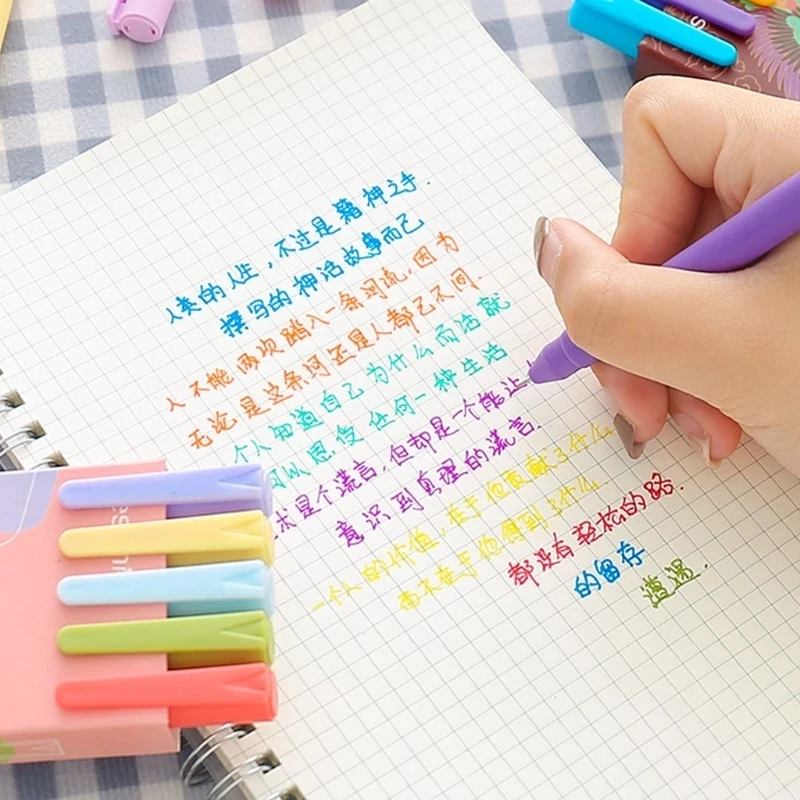 人类的人生，不过是籍神之手.
撰写的神话故事而己
人不能两次踏入一条河流，因为
无论是这条河还是人都己不同.
个人知道自己为什么而活就
可以忍受任何一种生活
术是个谎言，但却是一个能让
意识到真理的谎言.
一个人的价值，在于他贡献了什么
而不在于他得到了什么
都没有轻松的路.
的留存